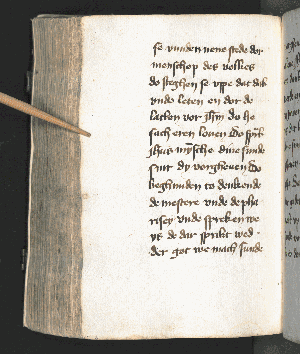 se vunden nene stede dor
menschop des volkes
do steghen se vppe dat dak
vnde leten en dor de
laken vor ihm do he
sach eren louen do sprak
ihus mynsche dine sunde
sint dy vorgheuen do
beghunden to denkende
de mestere vnde de pha
risey vnde spreken we
ys de dar sprikt wed
der got we mach sunde